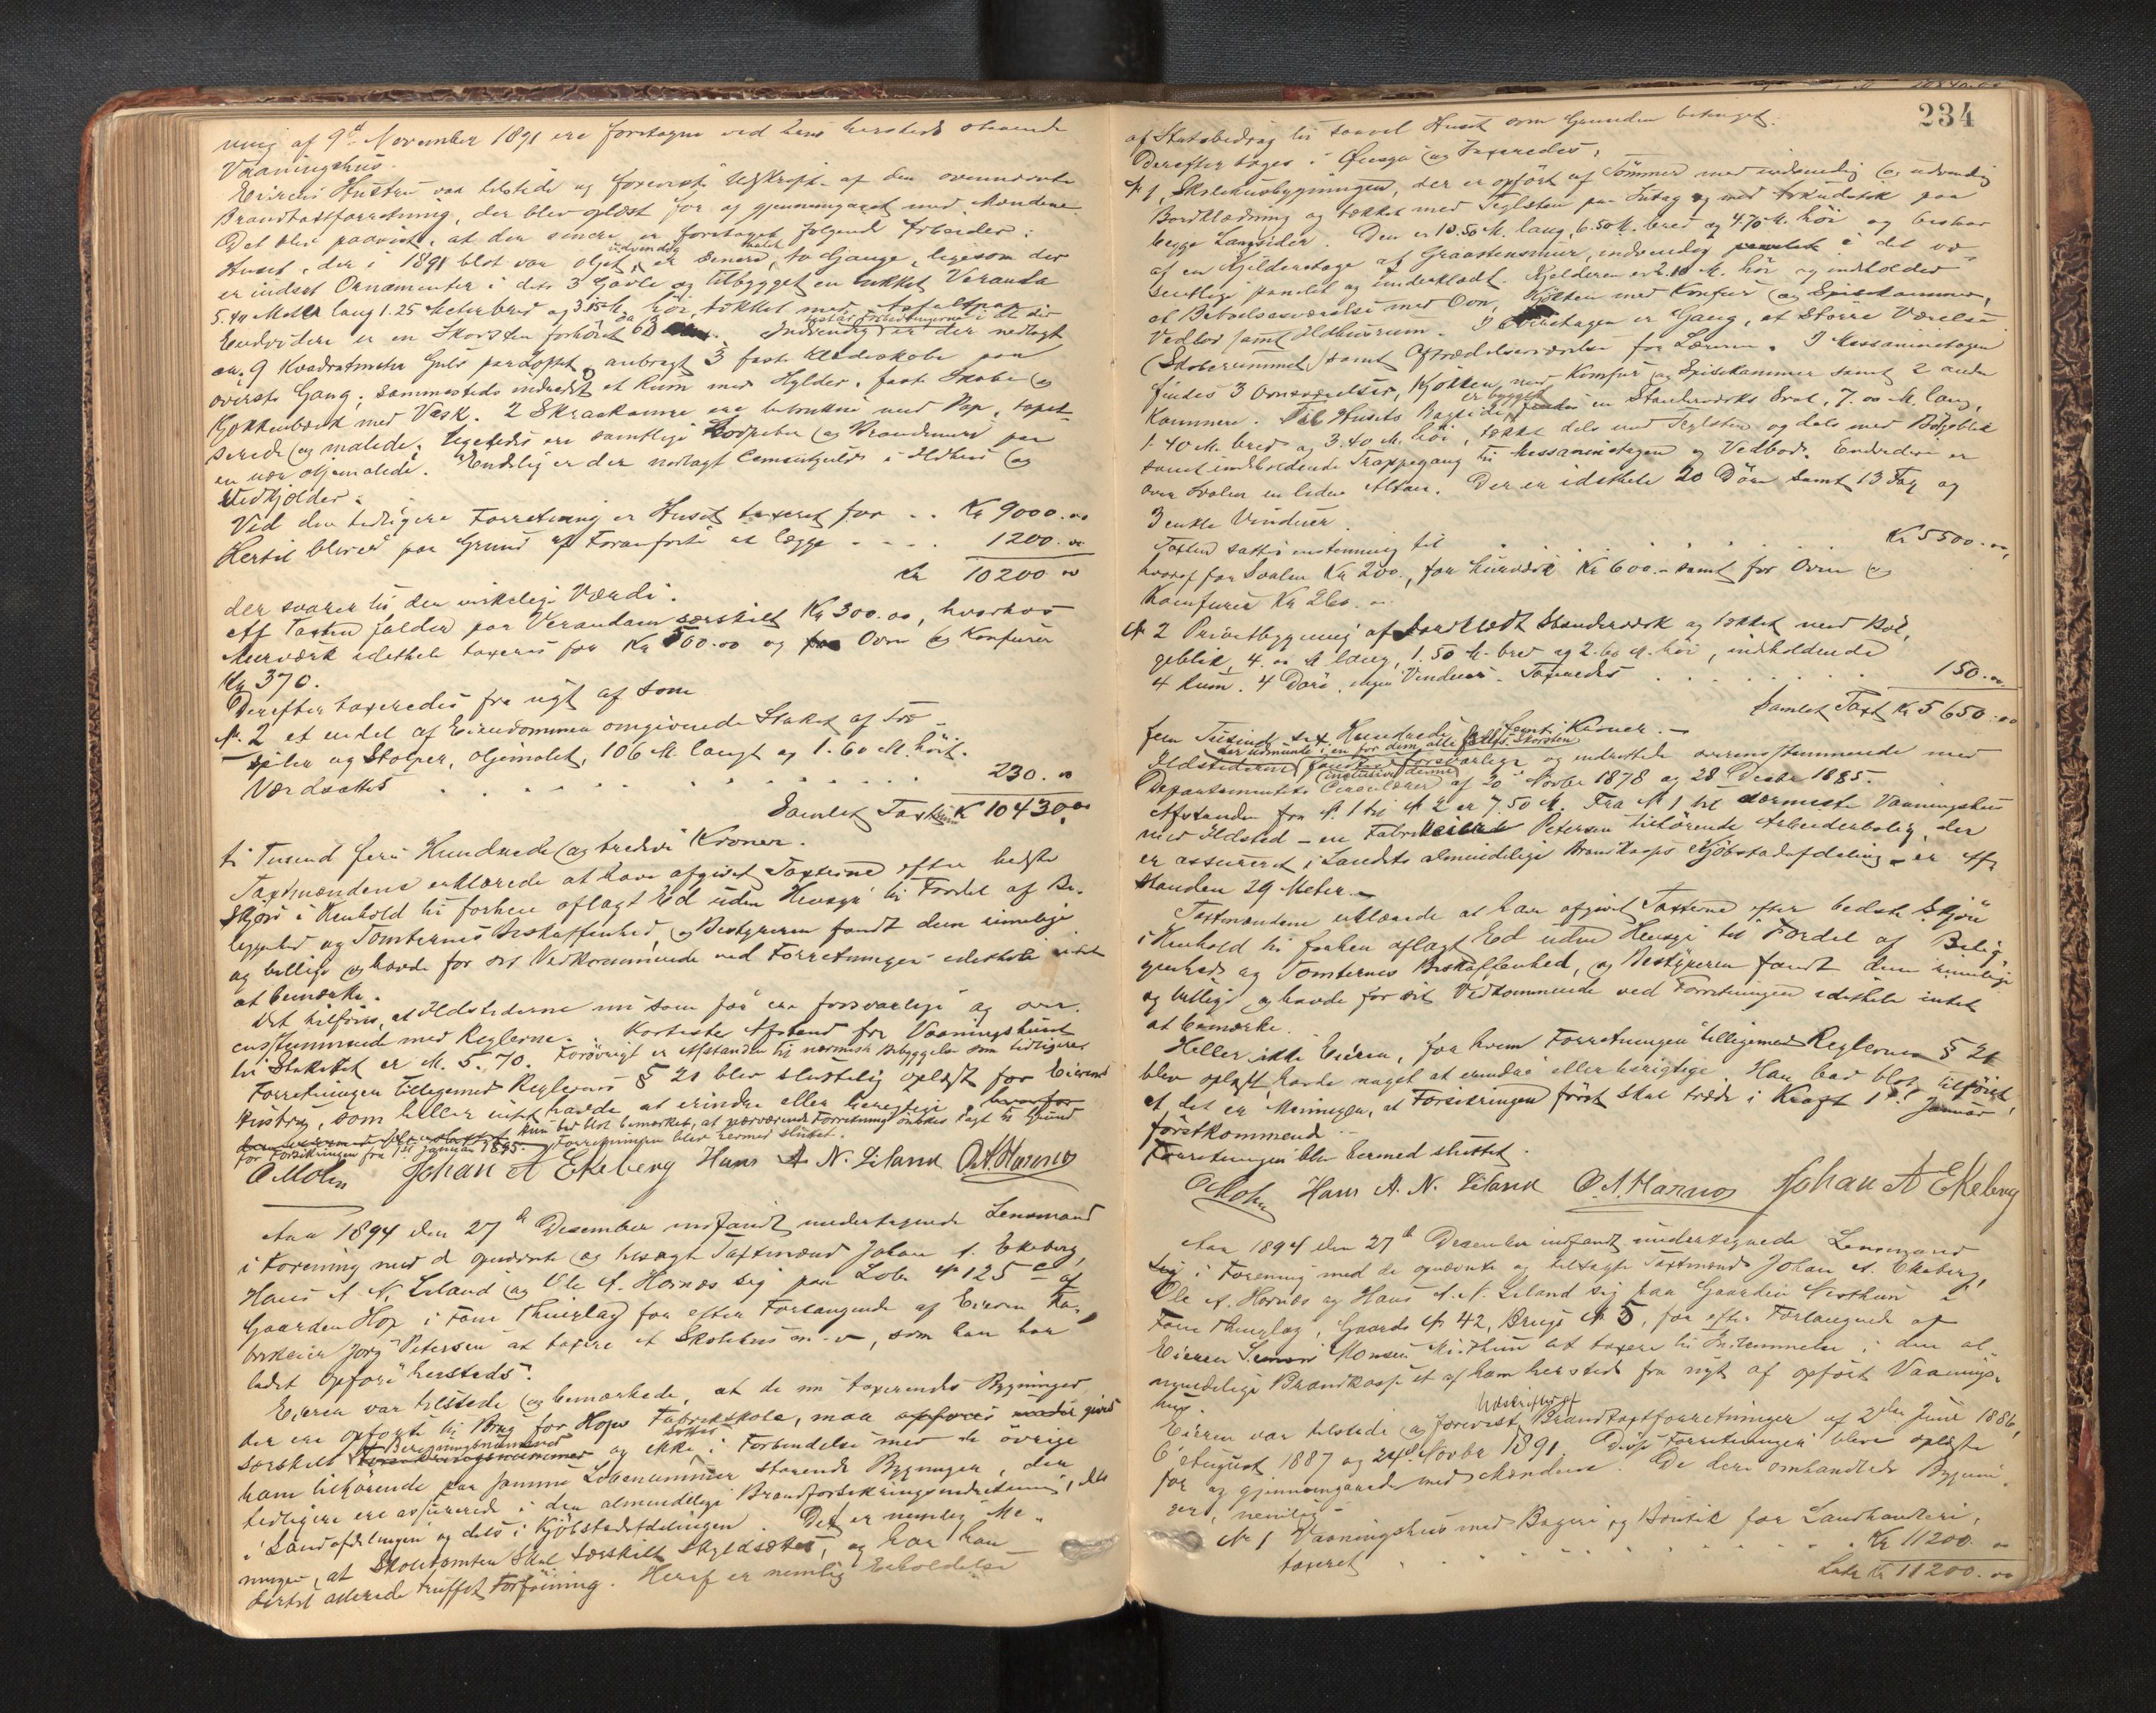 ning af 9de November 1891 ere foretagne ved hans hersteds staaende
Vaaningshus.
Eierens Hustru var tilstede og foreviste Udskrift af den ovennævnte
Brandtaxtforretning, der blev oplæst for og gjennemgaaet med Mændene.
Det blev paavist, at der senere er foretaget følgende Arbeider:
Huset, der i 1891 blot var oljet, er udvendig senere malet to Gange, ligesom der
er indsat Ornamenter i dets 3 Gavle og tilbygget en lukket Veranda
5.40 Meter lang 1.25 Meter bred og 3.15 M. høi, tækket med Asfaltpap
Endvidere er en Skorsten forhøiet 60 Indvendig er der nedlagt
ca. 9 Kvadratmeter Gulv paa Loftet, anbragt 3 faste Klædeskabe paa
øverste Gang; sammesteds indredet et Rum med Hylder, faste Skabe og
Kjøkkenbænk med Vask. 2 Skraakamre ere betrukne med Pap, tapet-
serede og malede. Ligeledes ere samtlige og Brandmure paa
en nær oljemalede. Endelig er der nedlagt Cementgulv i Ildhus og
Vedkjælder.
Ved den tidligere Forretning er Huset taxeret for .. Kr 9000.00
Hertil bliver paa Grund af Foranførte at lægge - - - . 1200.00
Kr 10200 00
der svarer til den virkelige Værdi.
Af Taxten falder paa Verandaen særskilt Kr 300.00, hvorhos
Murværk idethele taxeres for Kr 500.00 og Ovne og Komfurer
Kr 370.
Derefter taxeredes fra nyt af som
№ 2 et endel af Eiendommen omgivende Stakit af Træ-
spiler og Stolper, oljemalet, 106 M. langt og 1.60 M. høit.
Værdsattes . . . . . . . . . 230.00
Samlet Taxtsum K 10430.00
ti Tusend fire Hundrede og tredive Kroner.
Taxtmændene erklærede at have afgivet Taxterne efter bedste
Skjøn i Henhold til forhen aflagt Ed uden Hensyn til Fordel af Be-
liggenhed og Tomternes Beskaffenhed, og Bestyreren fandt dem rimelige
og billige og havde for sit Vedkommende ved Forretningen idethele intet
at bemærke.
Det tilføies, at Ildstederne nu som før ere forsvarlige og over-
ensstemmende med Reglerne. Korteste Afstand fra Vaaningshuset
til Stakittet er M. 5.70. Forøvrigt er Afstanden til nærmeste Bebyggelse som tidligere.
Forretningen tilligemed Reglernes § 21 blev sluttelig oplæst for Eierens
Hustru, som heller intet havde at erindre eller berigtige
Hun bad blot bemærket, at nærværende Forretning ønskes lagt til Grund
for Forsikringen fra 1ste Januar 1895. Forretningen blev hermed sluttet.
O Mohn Johan A Ekeberg Hans A. N. Liland O. A. Harnæs
Aar 1894 den 27de December indfandt undertegnede Lensmand
i Forening med de opnævnte og tilsagte Taxtmænd Johan A. Ekeberg,
Hans A. N. Liland og Ole A. Hornæs sig paa Løbe № 125 c af
Gaarden Hop i Fane Thinglag for efter Forlangende af Eieren Fa-
brikeier Jørg Petersen at taxere et Skolehus m. v., som han har
ladet opføre hersteds.
Eieren var tilstede og bemærkede, at de nu taxerendes Bygninger,
der ere opførte til Brug for Hops Fabrikskole, maa gives
særskilt Beregningsnummer og ikke sættes i Forbindelse med de øvrige
ham tilhørende paa samme Løbenummer staaende Bygninger, der
tidligere ere assurerede i den almindelige Brandforsikringsindretning, dels
i Landafdelingen og dels i Kjøbstadafdelingen. Det er nemlig Me-
ningen, at Skoletomten skal særskilt skyldsættes, og har han
dertil allerede truffet Forføining. Heraf er nemlig Erholdelse
234
af Statsbidrag til saavel Huset som Grunden betinget.
Derefter toges i Øiesyn og taxeredes:
№ 1, Skolehusbygningen, der er opført af Tømmer med indvendig og udvendig
Bordklædning og tækket med Teglsten paa Sutag og med Arkudstik paa
begge Langsider. Den er 10.50 M. lang, 6.50 M. bred og 4.70 M. høi og bestaar
af en Kjelderetage af Graastensmur, indvendig i det væ-
sentlige panelet og underklædt. Kjelderen er 2.10 M. høi og indeholder
et Beboelsesværelse med Ovn, Kjøkken med Komfur og Spisekammer,
Vedbod samt Ildhusrum. I Etagen er Gang, et større Værelse
(Skoleværelset) samt Aftrædelsesværelse for Læreren. I Messaninetagen
findes 3 Ovnsværelser, Kjøkken med Komfur og Spisekammer samt 2 andre
Kammere. Til Husets Bagside er bygget en Standværks Sval, 7.00 M. lang,
1.40 M. bred og 3.40 M. høi, tækket dels med Teglsten og dels med Bølgeblik
samt indeholdende Trappegang til Messaninetagen og Vedbod. Endvidere er
over Svalen en liden Altan. Der er idethele 20 Døre samt 13 Fag og
3 enkle Vinduer.
Taxten sattes enstemmig til . . . . . . . . Kr 5500.00,
hvoraf for Svalen Kr 200., for Murværk Kr 600.- samt for Ovne og
Komfurer Kr 260.-
№ 2 Privetbygning af bordklædt Standværk og tækket med Bøl-
geblik, 4.00 M lang, 1.50 M. bred og 2.60 M. høi, indeholdende
4 Rum. 4 Døre, ingen Vinduer. Taxeredes . . . . . . 150.00
Samlet Taxt Kr 5650.00
fem Tusind sex Hundrede halvtredsindstyve Kroner. -
Ildstederne der udmunde i en for dem alle fælles Skorsten og indrettede overensstemmende med
Departementets Circulærer af 20de Novbr 1878 og 28 Decbr 1885.
Afstanden fra № 1 til № 2 er 7.50 M. Fra № 1 til nærmeste Vaaningshus
med Ildsted - en Fabrikeier Petersen tilhørende Arbeiderbolig, der
er assureret i Landets almindelige Brandkasses Kjøbstadafdeling - er Af-
standen 29 Meter. -
Taxtmændene erklærede at have afgivet Taxterne efter bedste Skjøn
i Henhold til forhen aflagt Ed uden Hensyn til Fordel af Belig-
genhed og Tomternes Beskaffenhed, og Bestyreren fandt dem rimelige
og billige og havde for sit Vedkommende ved Forretningen idethele intet
at bemærke.
Heller ikke Eieren, for hvem Forretningen tilligemed Reglernes § 21
blev oplæst, havde noget at erindre eller berigtige. Han bad blot tilføiet,
at det er Meningen, at Forsikringen først skal træde i Kraft 1ste Januar
førstkommende.
Forretningen blev hermed sluttet.
O Mohn Hans A. N. Liland O. A. Harnæs Johan A Ekeberg
Aar 1894 den 27de December indfandt undertegnede Lensmand
sig i Forening med de opnævnte og tilsagte Taxtmænd Johan A. Ekeberg,
Ole A. Hornæs og Hans A. N. Liland sig paa Gaarden Nesthun i
Fane Thinglag, Gaards № 42, Brugs № 5, for efter Forlangende af
Eieren Simon Monsen Midthun at taxere til Indlemmelse i den al-
mindelige Brandkasse et af ham hersteds fra nyt af opført Vaanings-
hus.
Eieren var tilstede og foreviste Udskrifter af Brandtaxtforretninger af 2den Juni 1886,
6te August 1887 og 24de Novbr 1891. Disse Forretninger bleve oplæste
for og gjennemgaaede med Mændene. De deri omhandlede Bygnin-
ger, nemlig
№ 1 Vaaningshus med Bageri og Boutik for Landhandleri,
taxeret . . . . . . . . Kr 11200.00
Lats Kr 11200.00